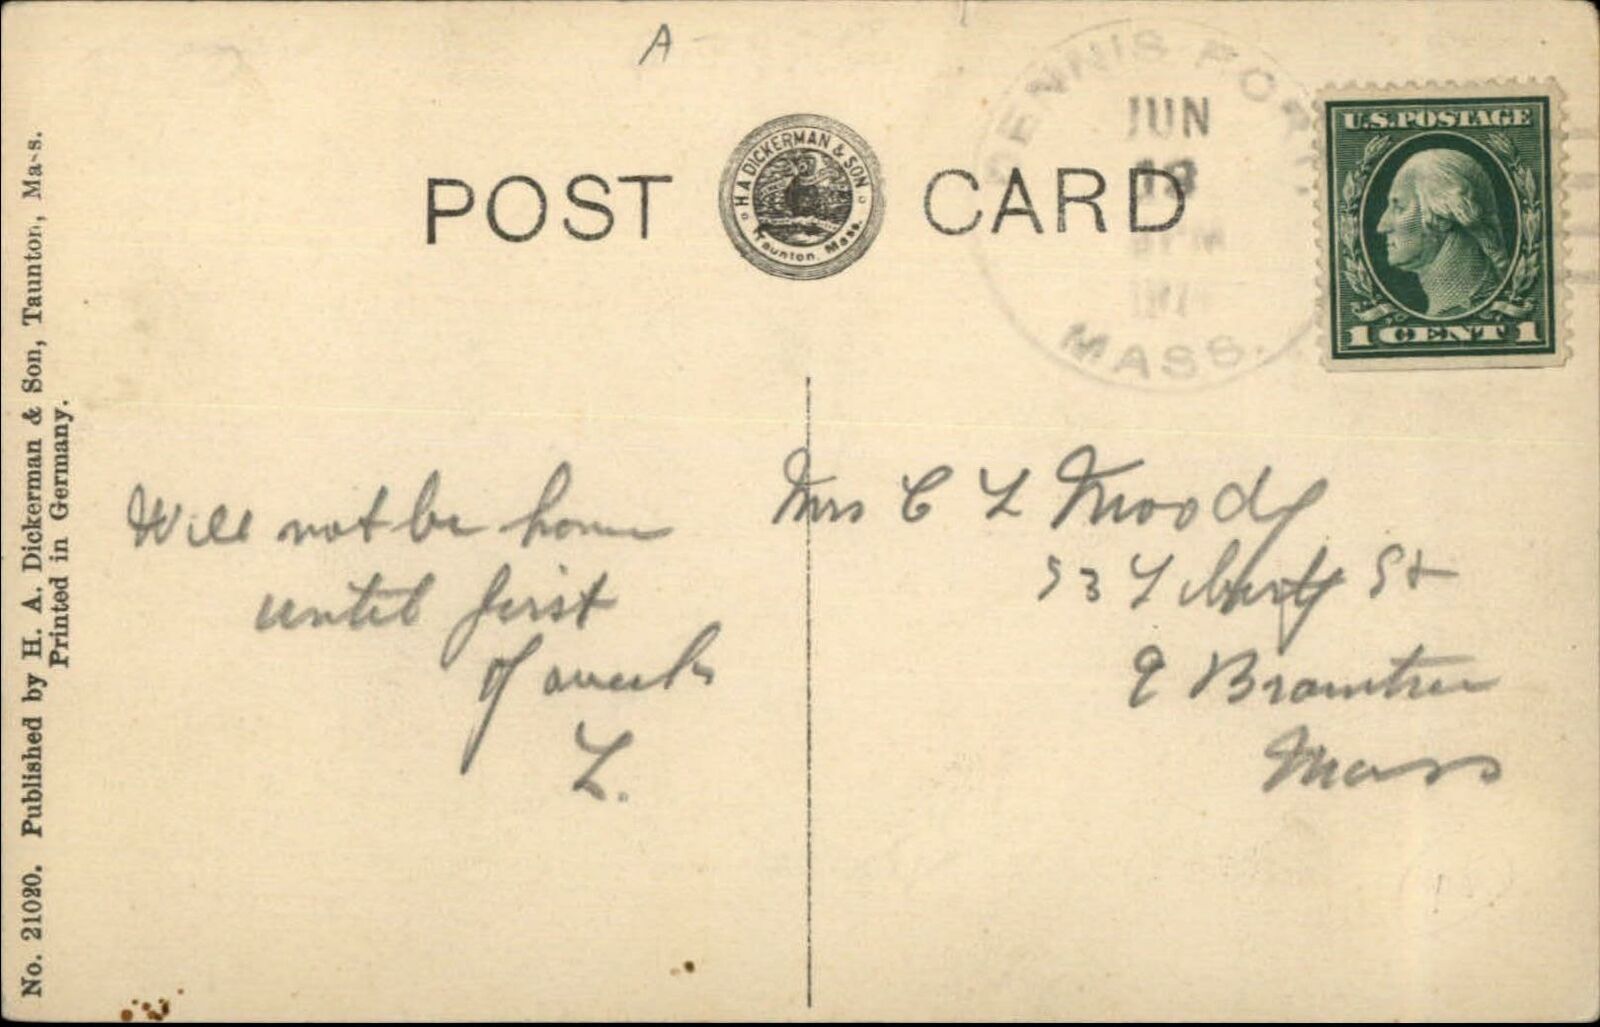 A
POST CARD
H.A. DICKERMAN & SON
Taunton, Mass.
DENNIS PORT
JUN
MASS.
U.S. POSTAGE
1 CENT 1
No. 21020. Published by H. A. Dickerman & Son, Taunton, Mass.
Printed in Germany.
Will not be home
until first
of week
L.
Mrs C L Moody
53 Liberty St
E Braintree
Mass